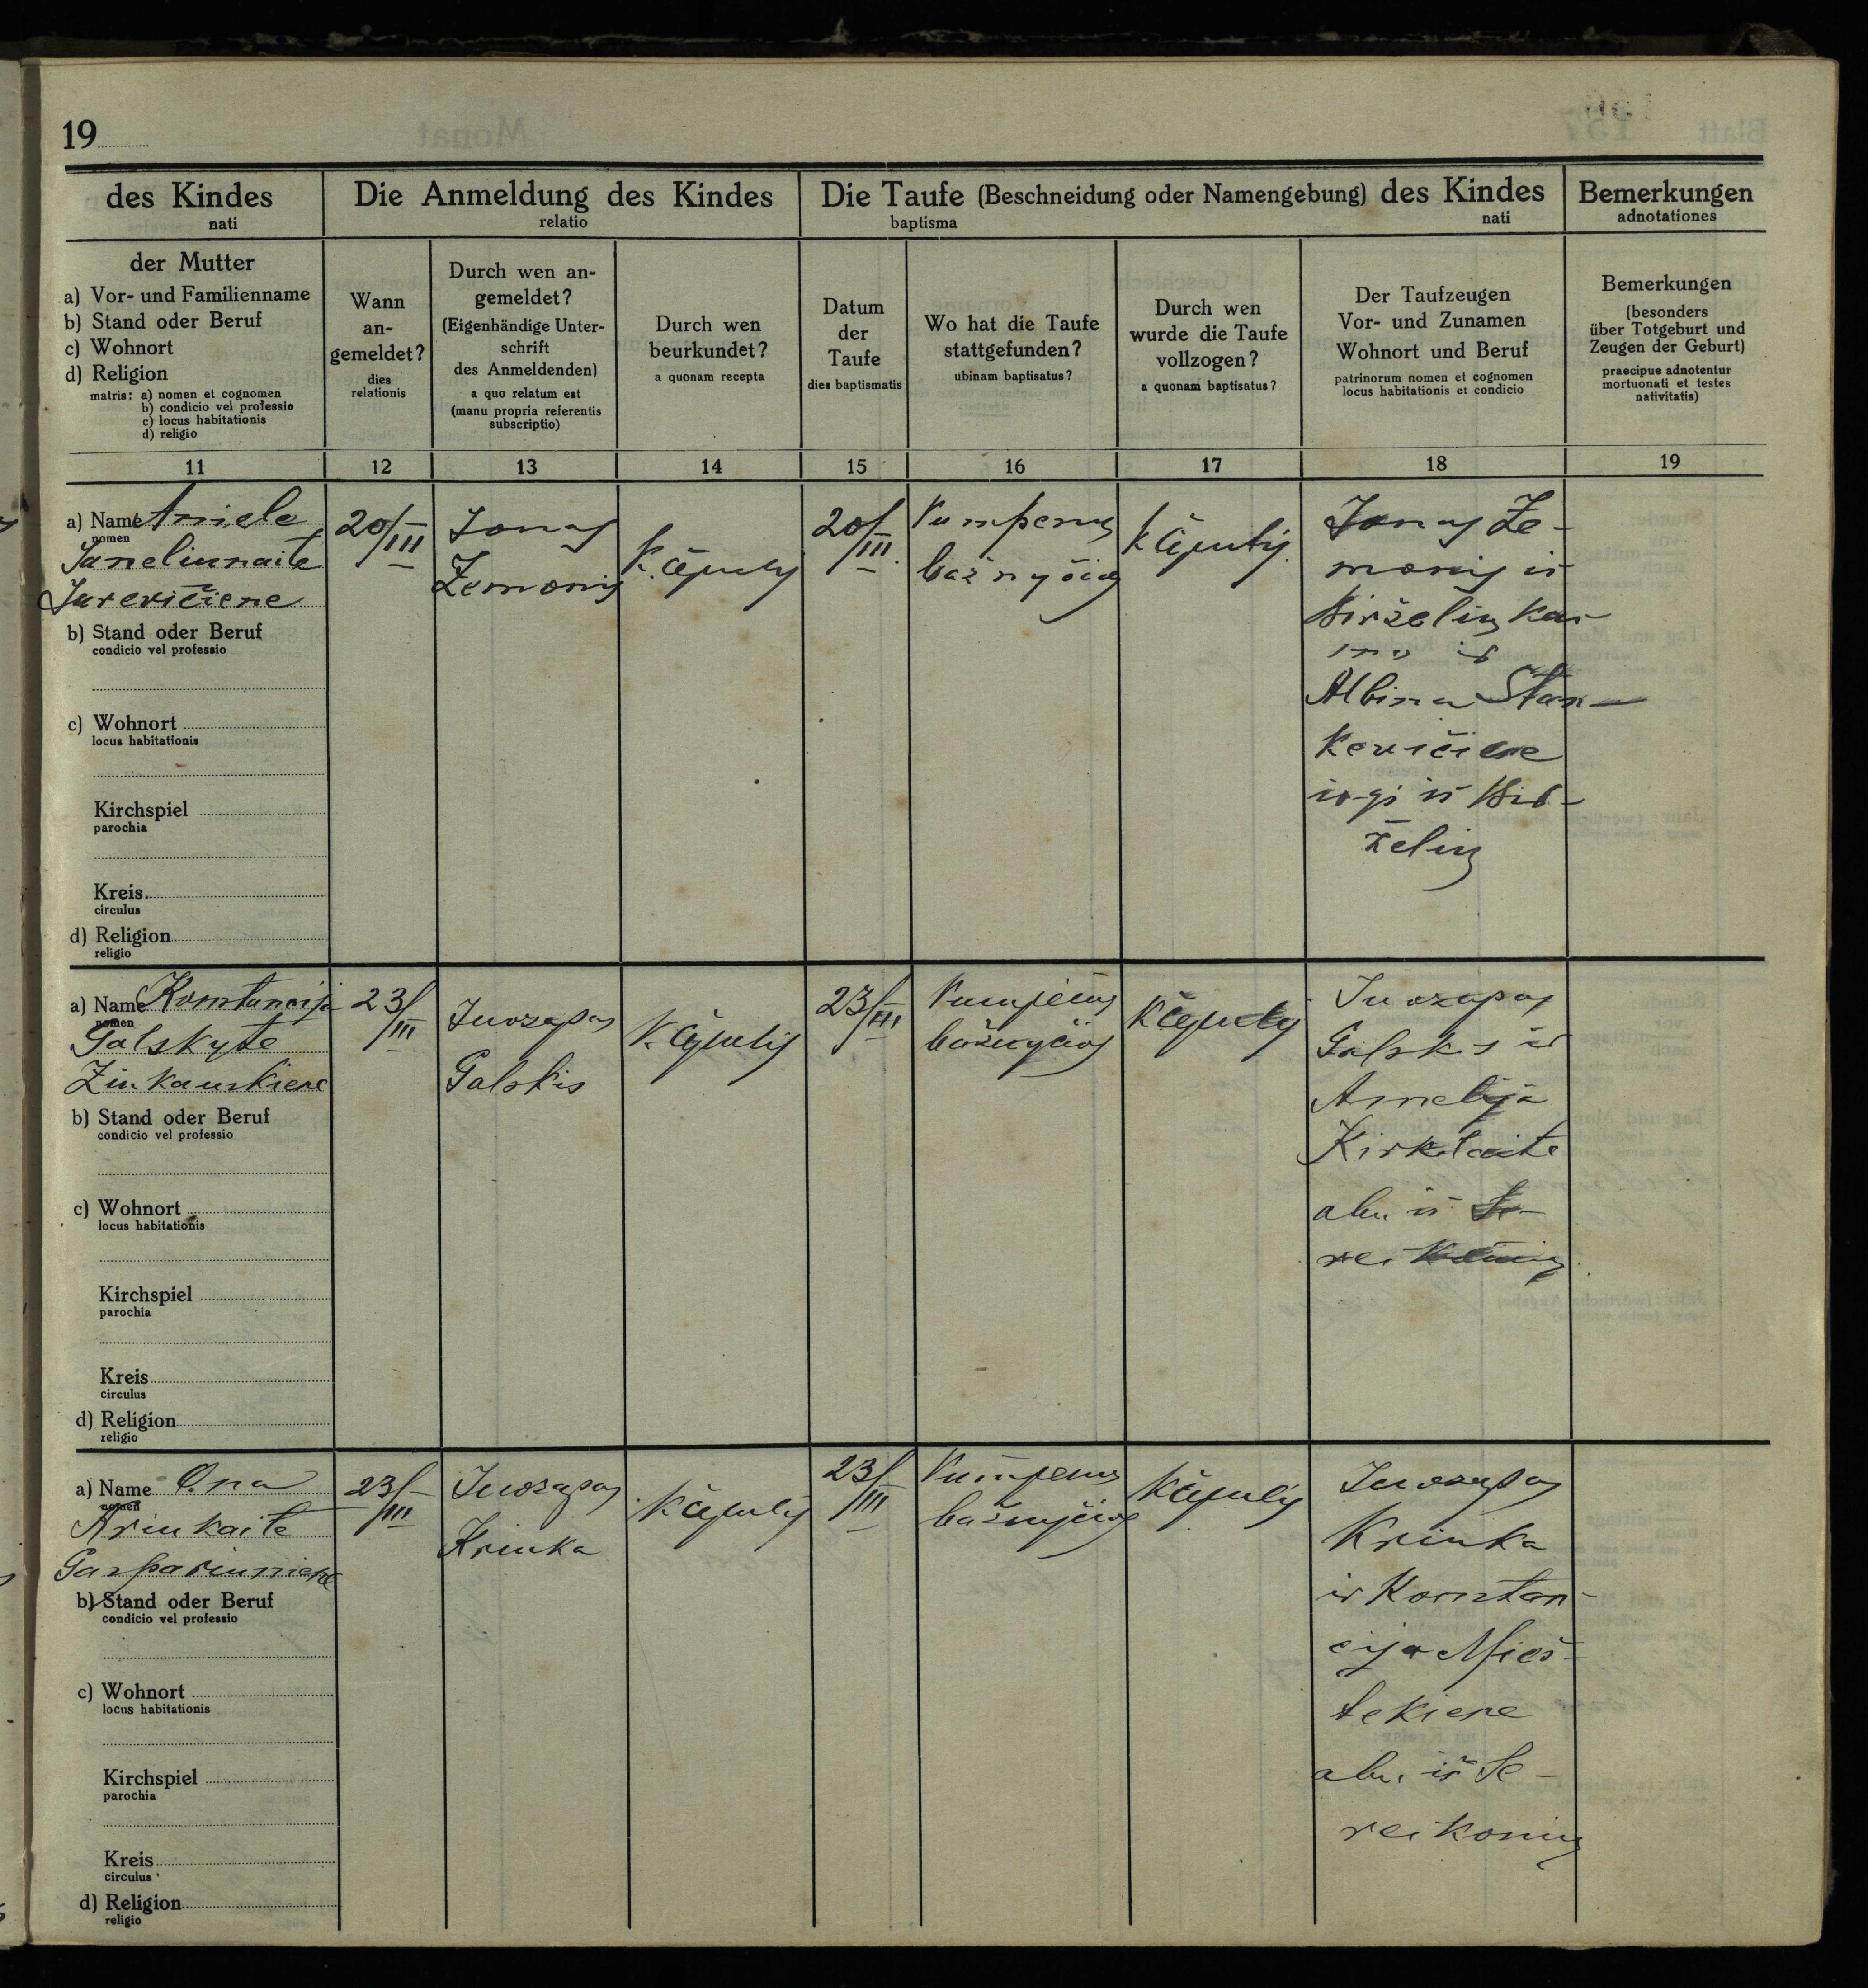 19
des Kindes
nati
Die Anmeldung des Kindes
relatio
Die Taufe (Beschneidung oder Namengebung) des Kindes
baptisma nati
Bemerkungen
adnotationes
der Mutter
a) Vor- und Familienname
b) Stand oder Beruf
c) Wohnort
d) Religion
matris: a) nomen et cognomen
b) condicio vel professio
c) locus habitationis
d) religio
Wann
an-
gemeldet?
dies
relationis
Durch wen an-
gemeldet?
(Eigenhändige Unter-
schrift
des Anmeldenden)
a quo relatum est
(manu propria referentis
subscriptio)
Durch wen
beurkundet?
a quonam recepta
Datum
der
Taufe
dies baptismatis
Wo hat die Taufe
stattgefunden?
ubinam baptisatus?
Durch wen
wurde die Taufe
vollzogen?
a quonam baptisatus?
Der Taufzeugen
Vor- und Zunamen
Wohnort und Beruf
patrinorum nomen et cognomen
locus habitationis et condicio
Bemerkungen
(besonders
über Totgeburt und
Zeugen der Geburt)
praecipue adnotentur
mortuonati et testes
nativitatis)
11 12 13 14 15 16 17 18 19
a) Name Aniele
nomen
Janeliunaite
Jurevičiene
b) Stand oder Beruf
condicio vel professio
c) Wohnort
locus habitationis
Kirchspiel
parochia
Kreis
circulus
d) Religion
religio
20/III
Jonas
Zemonis
K. Čepulis
20/III
Pumpenų
bažnyčioj
K Čepulis
Jonas Že-
monis iš
Birželių kai-
mo ir
Albina Stan-
kevičiene
irgi iš Bir-
želių
a) Name Konstancija
nomen
Galskyte
Zinkauskiene
b) Stand oder Beruf
condicio vel professio
c) Wohnort
locus habitationis
Kirchspiel
parochia
Kreis
circulus
d) Religion
religio
23/III
Juozapas
Galskis
K. Čepulis
23/III
Pumpėnų
bažnyčioj
K Čepulis
Juozapas
Galskis ir
Amelija
abu iš
a) Name Ona
nomen
Krinkaite
Gaspariuniene
b) Stand oder Beruf
condicio vel professio
c) Wohnort
locus habitationis
Kirchspiel
parochia
Kreis
circulus
d) Religion
religio
23/III
Juozapas
Krinka
K Čepulis
23/III
Pumpenų
bažnyčioj
K Čepulis
Juozapas
Krinka
ir Konstan-
cija Mieš-
tekiene
abu iš Se-
reikonių